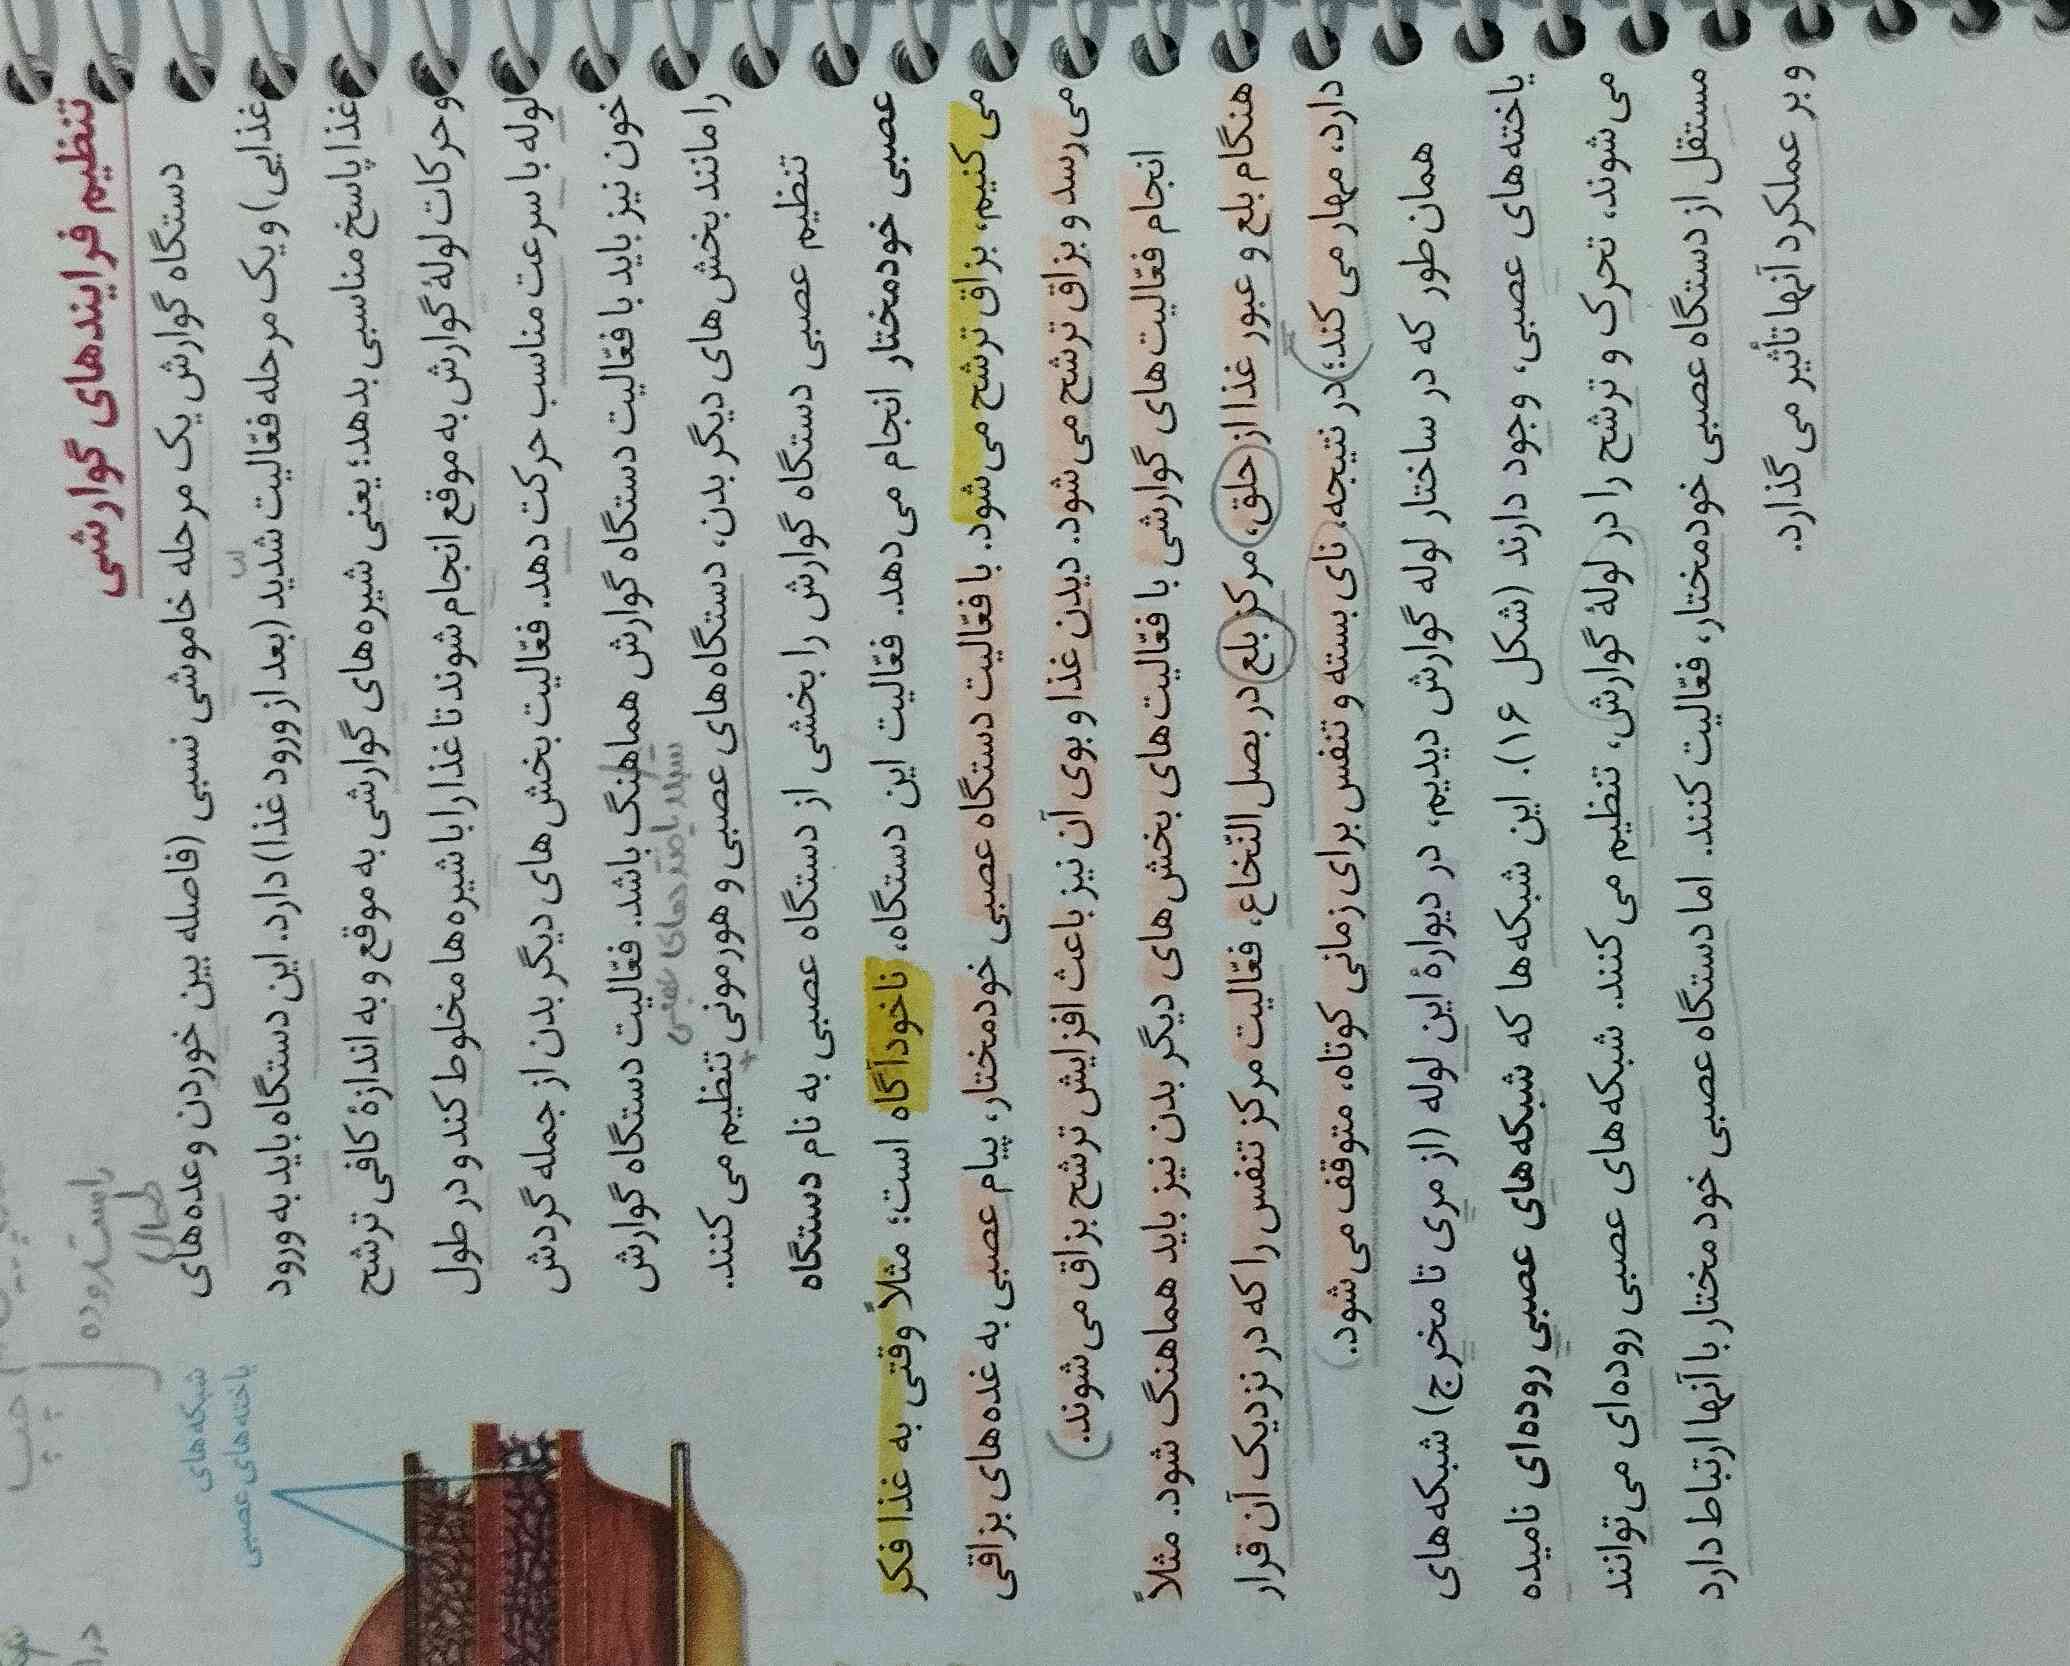 تنظیم فرایندهای گوارشی
دستگاه گوارش یک مرحله خاموشی نسبی (فاصله بین خوردن وعده‌های
غذایی) و یک مرحله فعّالیت شدید (بعد از ورود غذا) دارد. این دستگاه باید به ورود
غذا پاسخ مناسبی بدهد؛ یعنی شیره‌های گوارشی به موقع و به اندازهٔ کافی ترشح
و حرکات لولهٔ گوارش به موقع انجام شوند تا غذا را با شیره‌ها مخلوط کند و در طول
لوله با سرعت مناسب حرکت دهد. فعّالیت بخش‌های دیگر بدن از جمله گردش
خون نیز باید با فعّالیت دستگاه گوارش هماهنگ باشد. فعّالیت دستگاه گوارش
را مانند بخش‌های دیگر بدن، دستگاه‌های عصبی و هورمونی تنظیم می‌کنند.
تنظیم عصبی دستگاه گوارش را بخشی از دستگاه عصبی به نام دستگاه
عصبی خودمختار انجام می‌دهد. فعّالیت این دستگاه، ناخودآگاه است؛ مثلاً وقتی به غذا فکر
می‌کنیم، بزاق ترشح می‌شود. با فعّالیت دستگاه عصبی خودمختار، پیام عصبی به غده‌های بزاقی
می‌رسد و بزاق ترشح می‌شود. دیدن غذا و بوی آن نیز باعث افزایش ترشح بزاق می‌شوند.
انجام فعّالیت‌های گوارشی با فعّالیت‌های بخش‌های دیگر بدن نیز باید هماهنگ شود. مثلاً
هنگام بلع و عبور غذا از حلق، مرکز بلع در بصل النّخاع، فعّالیت مرکز تنفس را که در نزدیک آن قرار
دارد، مهار می‌کند؛ در نتیجه، نای بسته و تنفس برای زمانی کوتاه، متوقف می‌شود.
همان‌طور که در ساختار لوله گوارش دیدیم، در دیوارهٔ این لوله (از مری تا مخرج) شبکه‌های
یاخته‌های عصبی، وجود دارند (شکل ۱۶). این شبکه‌ها که شبکه‌های عصبی روده‌ای نامیده
می‌شوند، تحرک و ترشح را در لولهٔ گوارش، تنظیم می‌کنند. شبکه‌های عصبی روده‌ای می‌توانند
مستقل از دستگاه عصبی خودمختار، فعّالیت کنند. اما دستگاه عصبی خودمختار با آنها ارتباط دارد
و بر عملکرد آنها تأثیر می‌گذارد.
شبکه‌های
یاخته‌های عصبی
راست روده
طحال
چپ